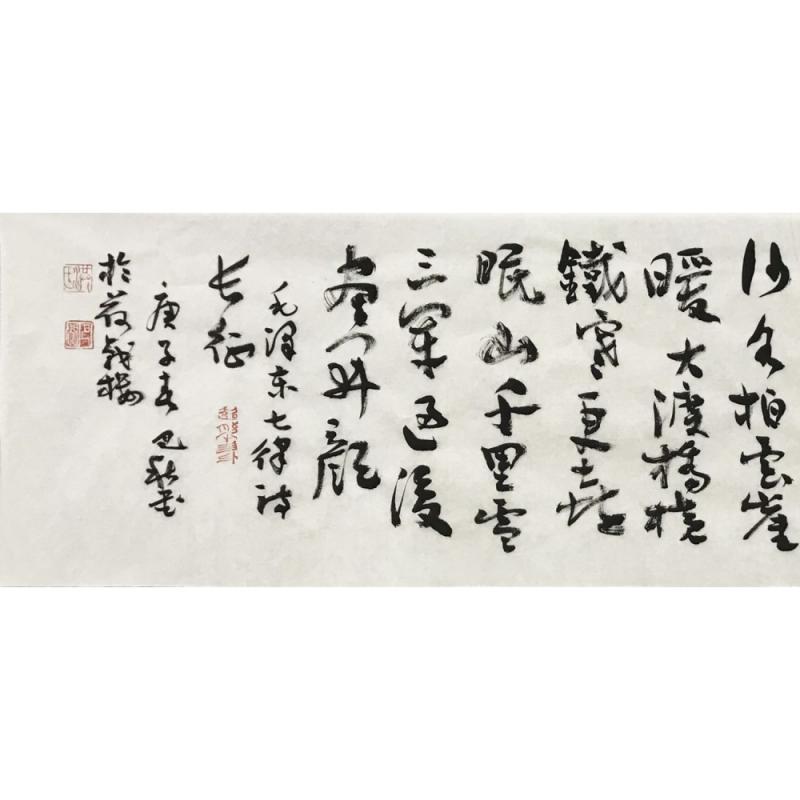 沙水拍雲崖
暖大渡橋橫
鐵索寒更喜
岷山千里雪
三軍過後
盡開顏
毛澤東七律詩
长征
庚子春
於樓